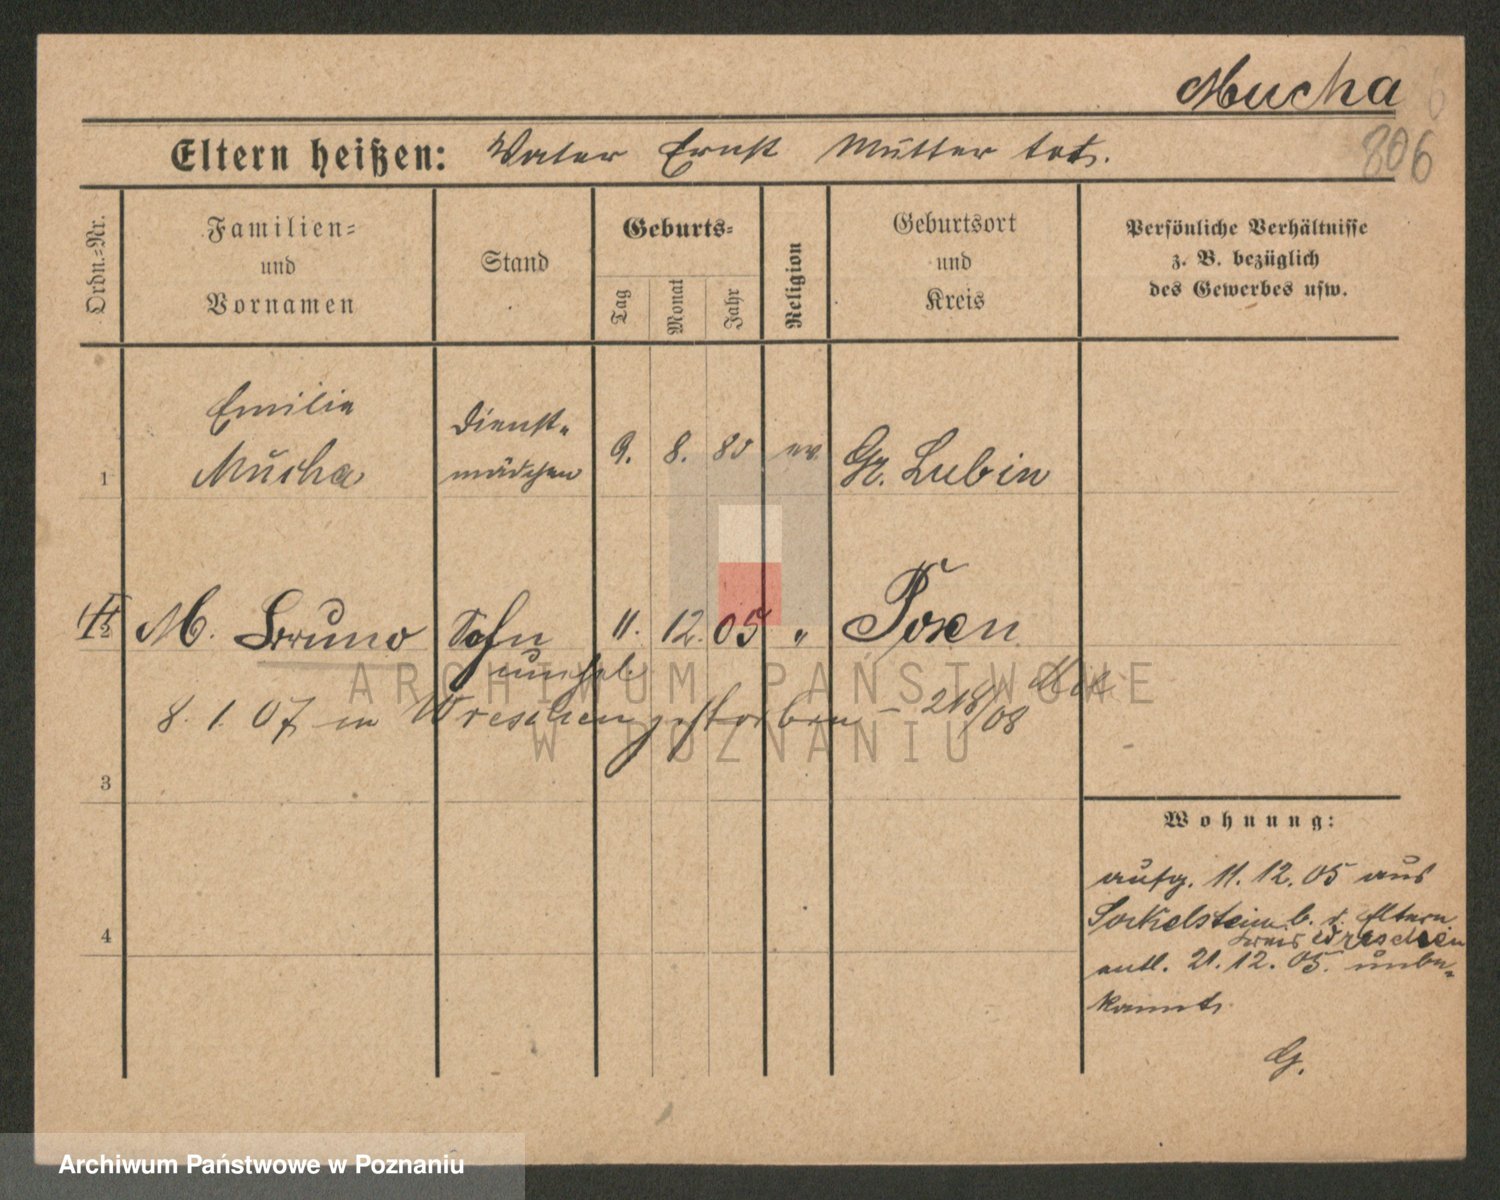 Mucha
806
Eltern heißen: Vater Ernst Mutter tot.
Ordn.-Nr.
Familien-
und
Vornamen
Stand
Geburts-
Tag
Monat
Jahr
Religion
Geburtsort
und
Kreis
Persönliche Verhältnisse
z. B. bezüglich
des Gewerbes usw.
1 Emilie Mucha Dienst-mädchen 9. 8. 80 ev. Gr. Lubin
2 M. Bruno Sohn unehel. 11. 12. 05 " Posen
8. 1. 07 in Wreschen gestorben - 218/08
3
4
Wohnung:
aufg. 11. 12. 05 aus
Sockelstein b. d. Eltern
Kreis Wreschen
entl. 21. 12. 05. unbe-
kannt
G.
ARCHIWUM PAŃSTWOWE
W POZNANIU
Archiwum Państwowe w Poznaniu